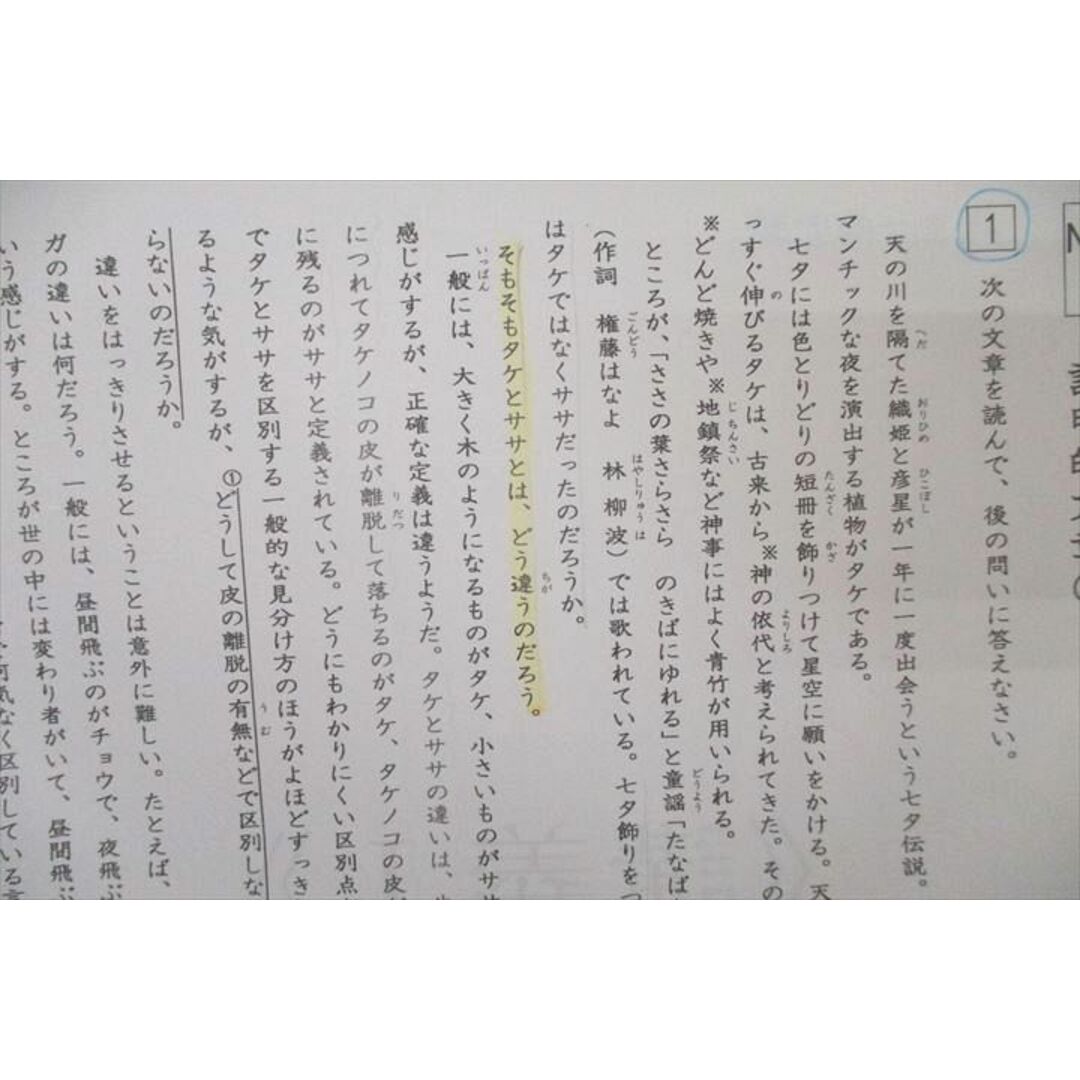 1
次の文章を読んで、後の問いに答えなさい。
天の川を隔てた織姫と彦星が一年に一度出会うという七夕伝説。
マンチックな夜を演出する植物がタケである。
七夕には色とりどりの短冊を飾りつけて星空に願いをかける。天
っすぐ伸びるタケは、古来から※神の依代と考えられてきた。その
※どんど焼きや※地鎮祭など神事にはよく青竹が用いられる。
ところが、「ささの葉さらさら　のきばにゆれる」と童謡「たなば
（作詞　権藤はなよ　林柳波）では歌われている。七夕飾りをつ
はタケではなくササだったのだろうか。
そもそもタケとササとは、どう違うのだろう。
一般には、大きく木のようになるものがタケ、小さいものがサ
感じがするが、正確な定義は違うようだ。タケとササの違いは、
につれてタケノコの皮が離脱して落ちるのがタケ、タケノコの皮
に残るのがササと定義されている。どうにもわかりにくい区別点
でタケとササを区別する一般的な見分け方のほうがよほどすっき
るような気がするが、①どうして皮の離脱の有無などで区別しな
らないのだろうか。
違いをはっきりさせるということは意外に難しい。たとえば、
ガの違いは何だろう。一般には、昼間飛ぶのがチョウで、夜飛ぶ
いう感じがする。ところが世の中には変わり者がいて、昼間飛ぶ
何気なく区別している